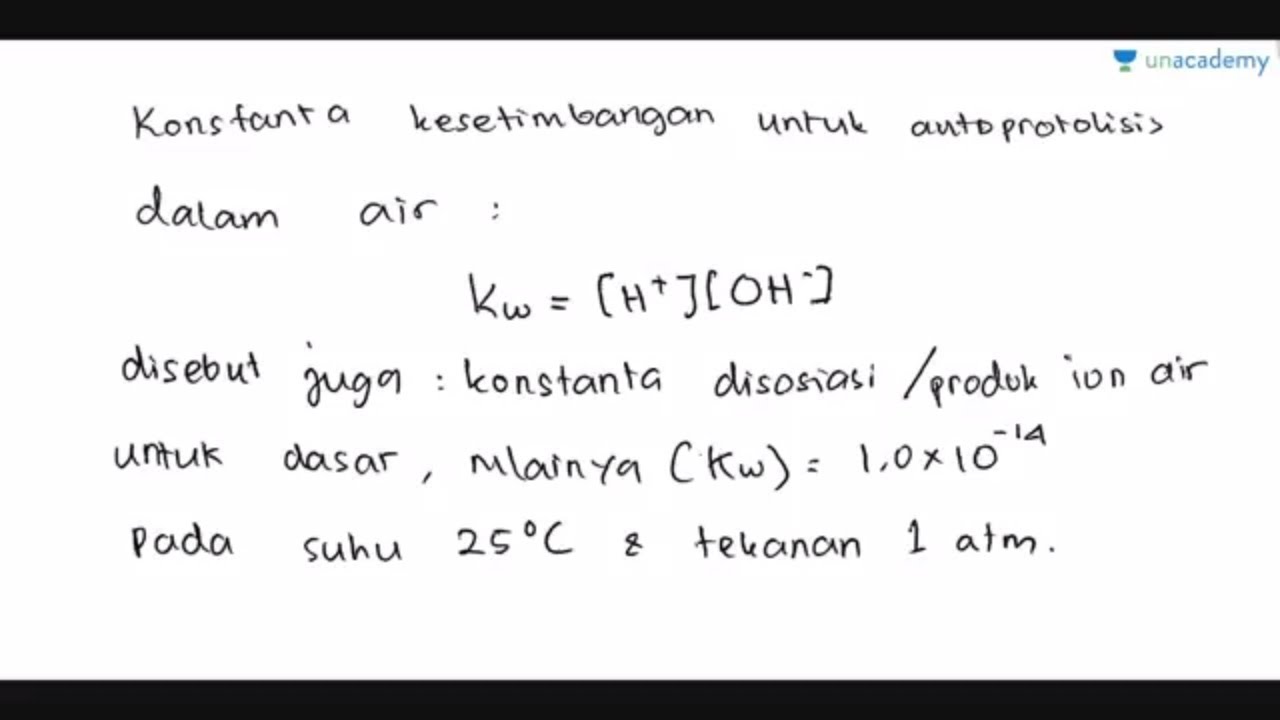 unacademy
Konstanta kesetimbangan untuk autoprotolisis
dalam air :
Kw = [H⁺][OH⁻]
disebut juga : konstanta disosiasi /produk ion air
untuk dasar, nilainya (Kw) = 1,0 × 10⁻¹⁴
Pada suhu 25°C & tekanan 1 atm.